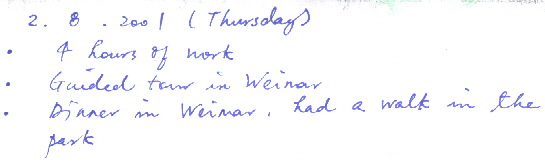 2. 8. 2001 (Thursday)
• 4 hours of work
• Guided tour in Weimar
• Dinner in Weimar, had a walk in the
park